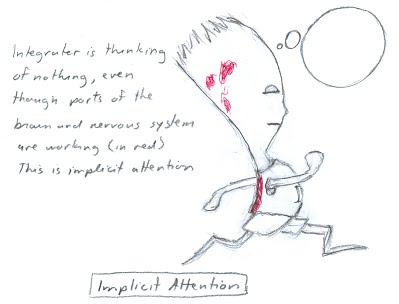 Integrater is thinking
of nothing, even
though parts of the
brain and nervous system
are working (in red)
This is implicit attention
Implicit Attention